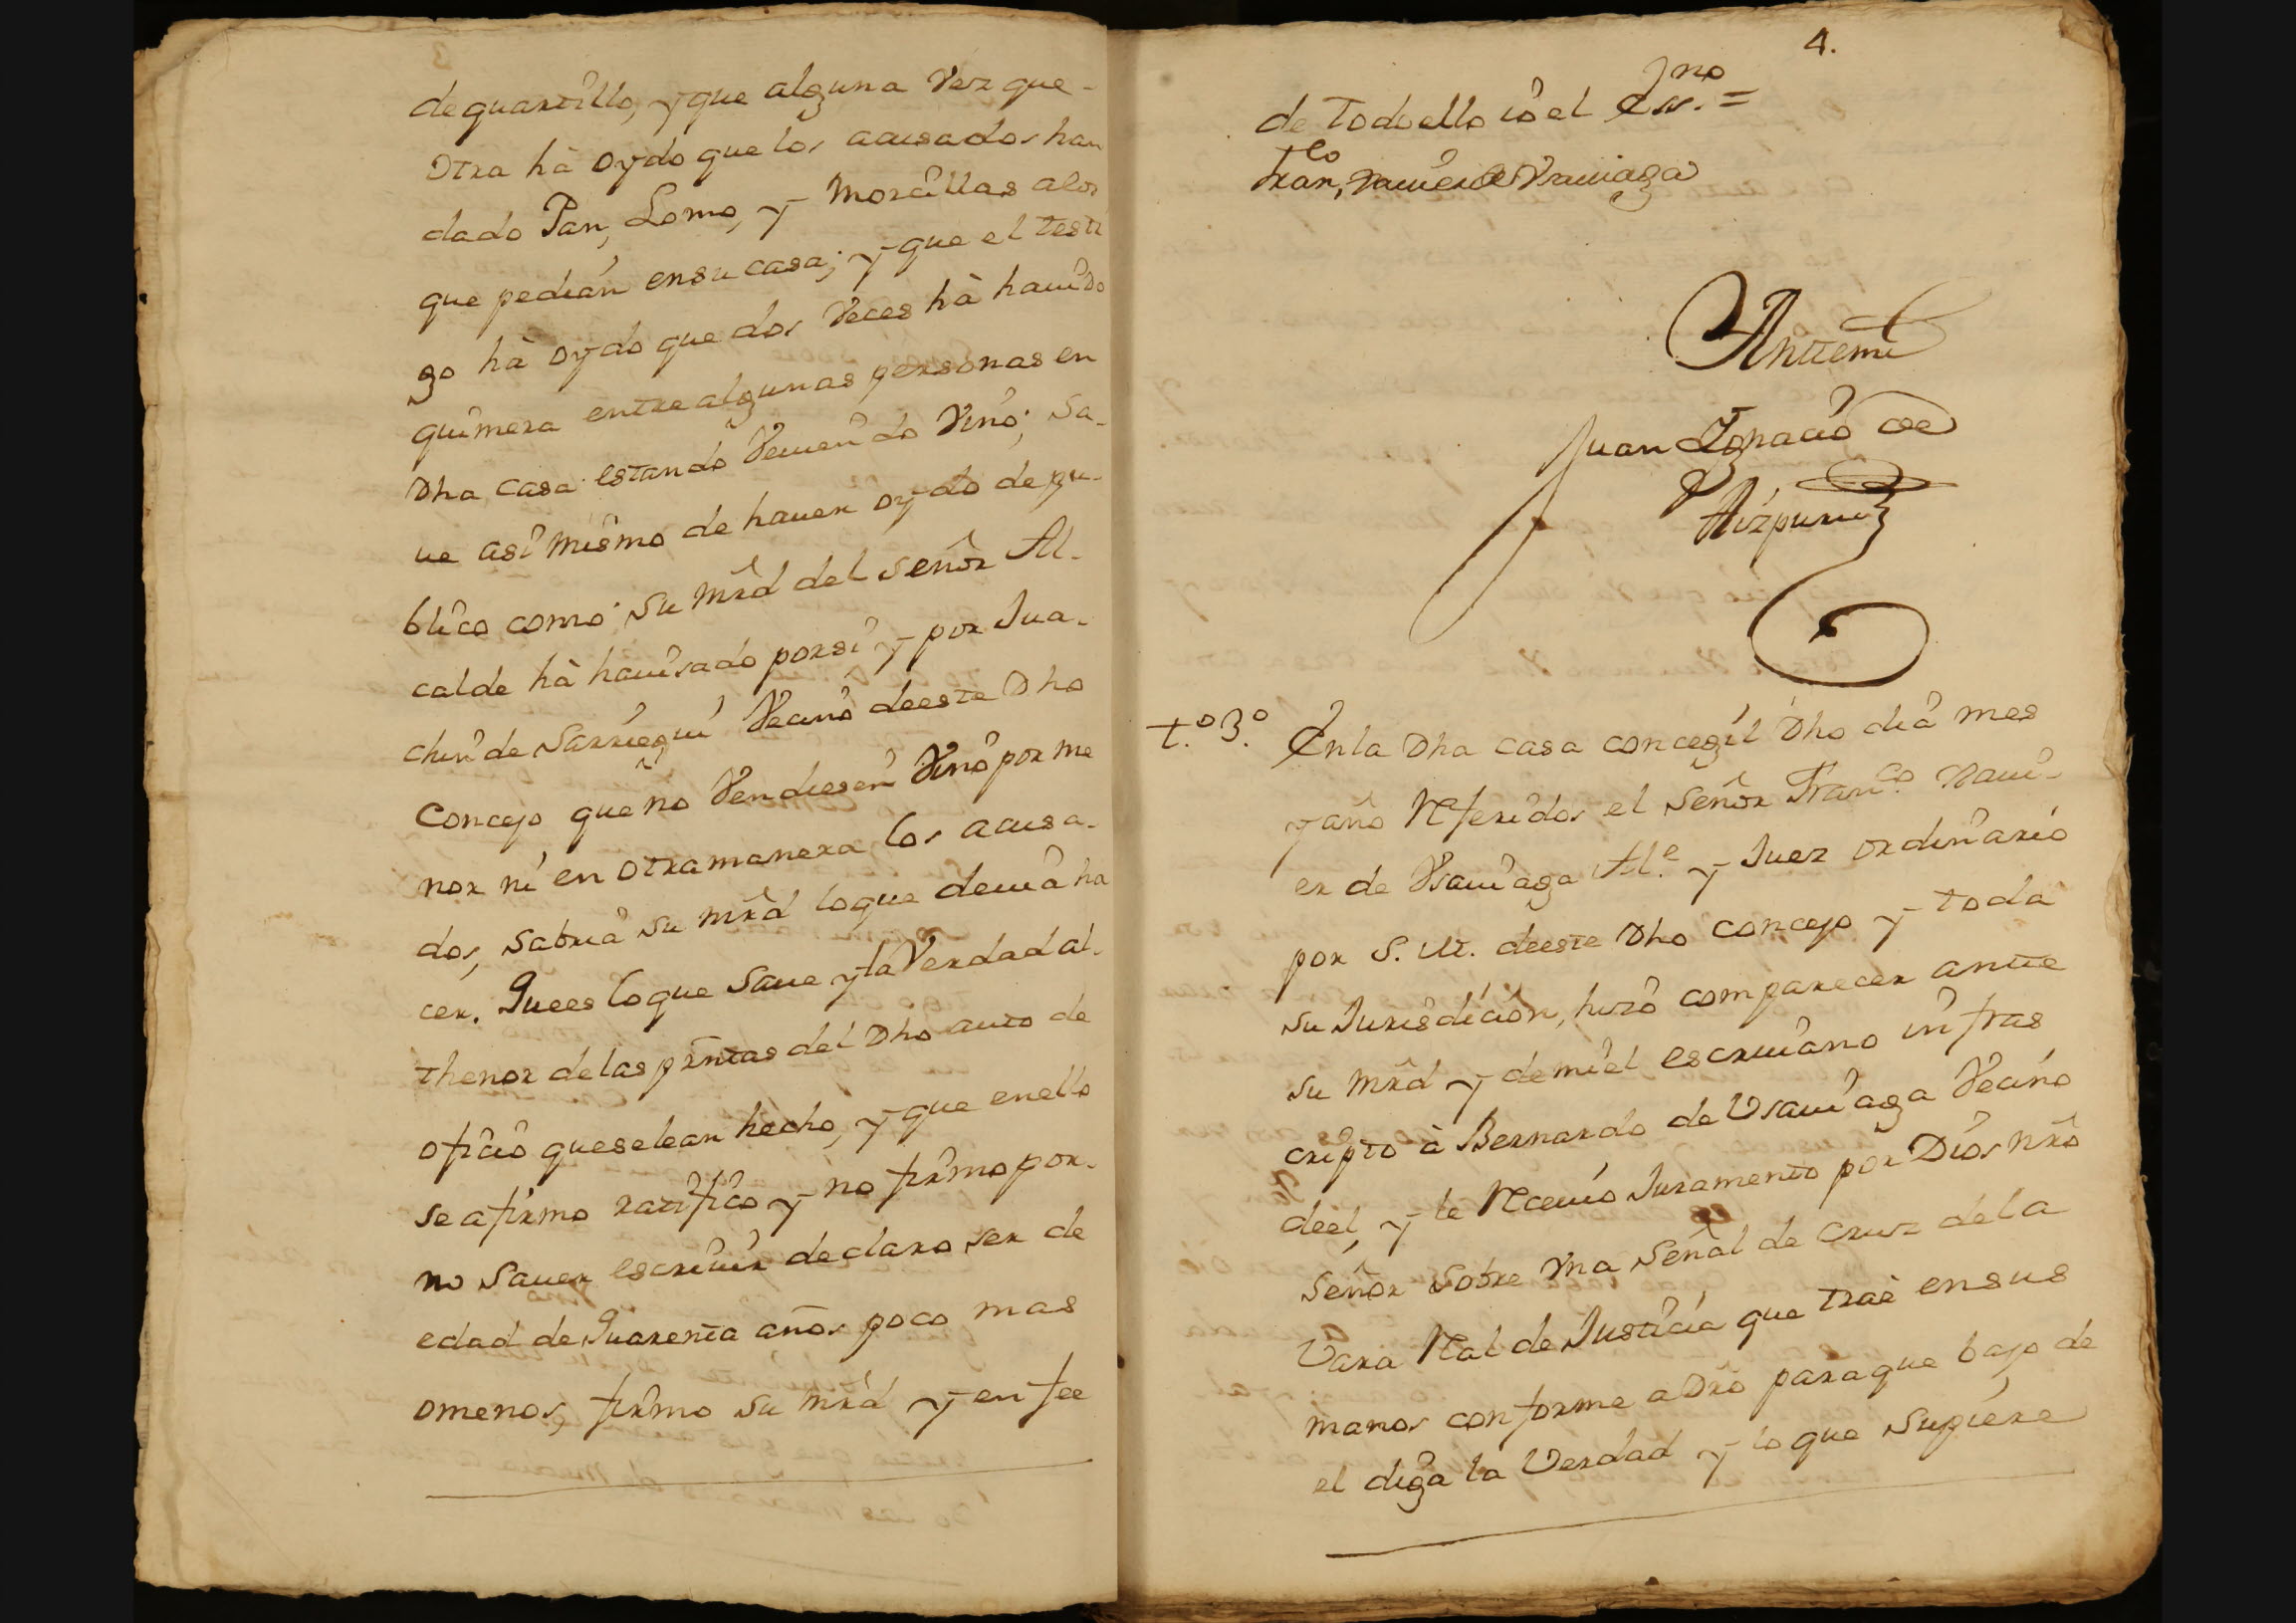 de quartillo, y que alguna Vez que-
Otra hà oydo que los acusados han
dado Pan, Lomo, y Morcillas alos
que pedian en su casa; y que el testi
go hà oydo que dos Veces hà hauido
quimera entre algunas personas en
Dha casa estando Veuiendo Vino; Sa-
ue asi mismo de hauer oydo de pu-
blico como su mrd del señor Al-
calde hà hauisado por si y por Jua-
chin de Sarriegui Vecino de este Dho
Concejo que no Vendiesen Vino por me
nor ni en otra manera los acusa-
dos, Sabria su mrd lo que deuia ha
cer. Que es lo que Saue y la Verdad al-
thenor de las prntas del Dho auto de
oficio que se lean hecho, y que en ello
se afirmo ratifico y no firmo por-
no Sauer escriuir declaro ser de
edad de Quarenta años poco mas
omenos, firmo su mrd y en fee
4.
de Todo ello io el Esno. =
Franco, Xauier de Vsauiaga
Antemi
Juan Ygnacio de
Aizpuru
t.o 3.o En la Dha casa concegil Dho dia mes
y año Referidos el Señor Franco. Xaui-
er de Vsauiaga Ale. y Juez ordinario
por S. M. de este Dho concejo y toda
su Jurisdicion, hizo comparecer ante
su mrd y de mi el escriuano infras
cripto à Bernardo de Vsauiaga Vecino
de el, y le Receuio Juramento por Dios nro
Señor sobre Vna Señal de Cruz de la
Vara Real de Justicia que traè en sus
manos conforme a Dro para que bajo de
el diga la Verdad y lo que Supiere